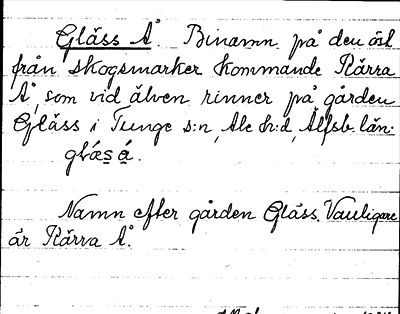 Gläss Å. Binamn på den öst
från skogsmarker kommande Kärra
Å, som vid älven rinner på gården
Gläss i Tunge s:n, Ale h:d, Älfsb. län:
glǽs á.
Namn efter gården Gläss. Vanligare
är Kärra Å.